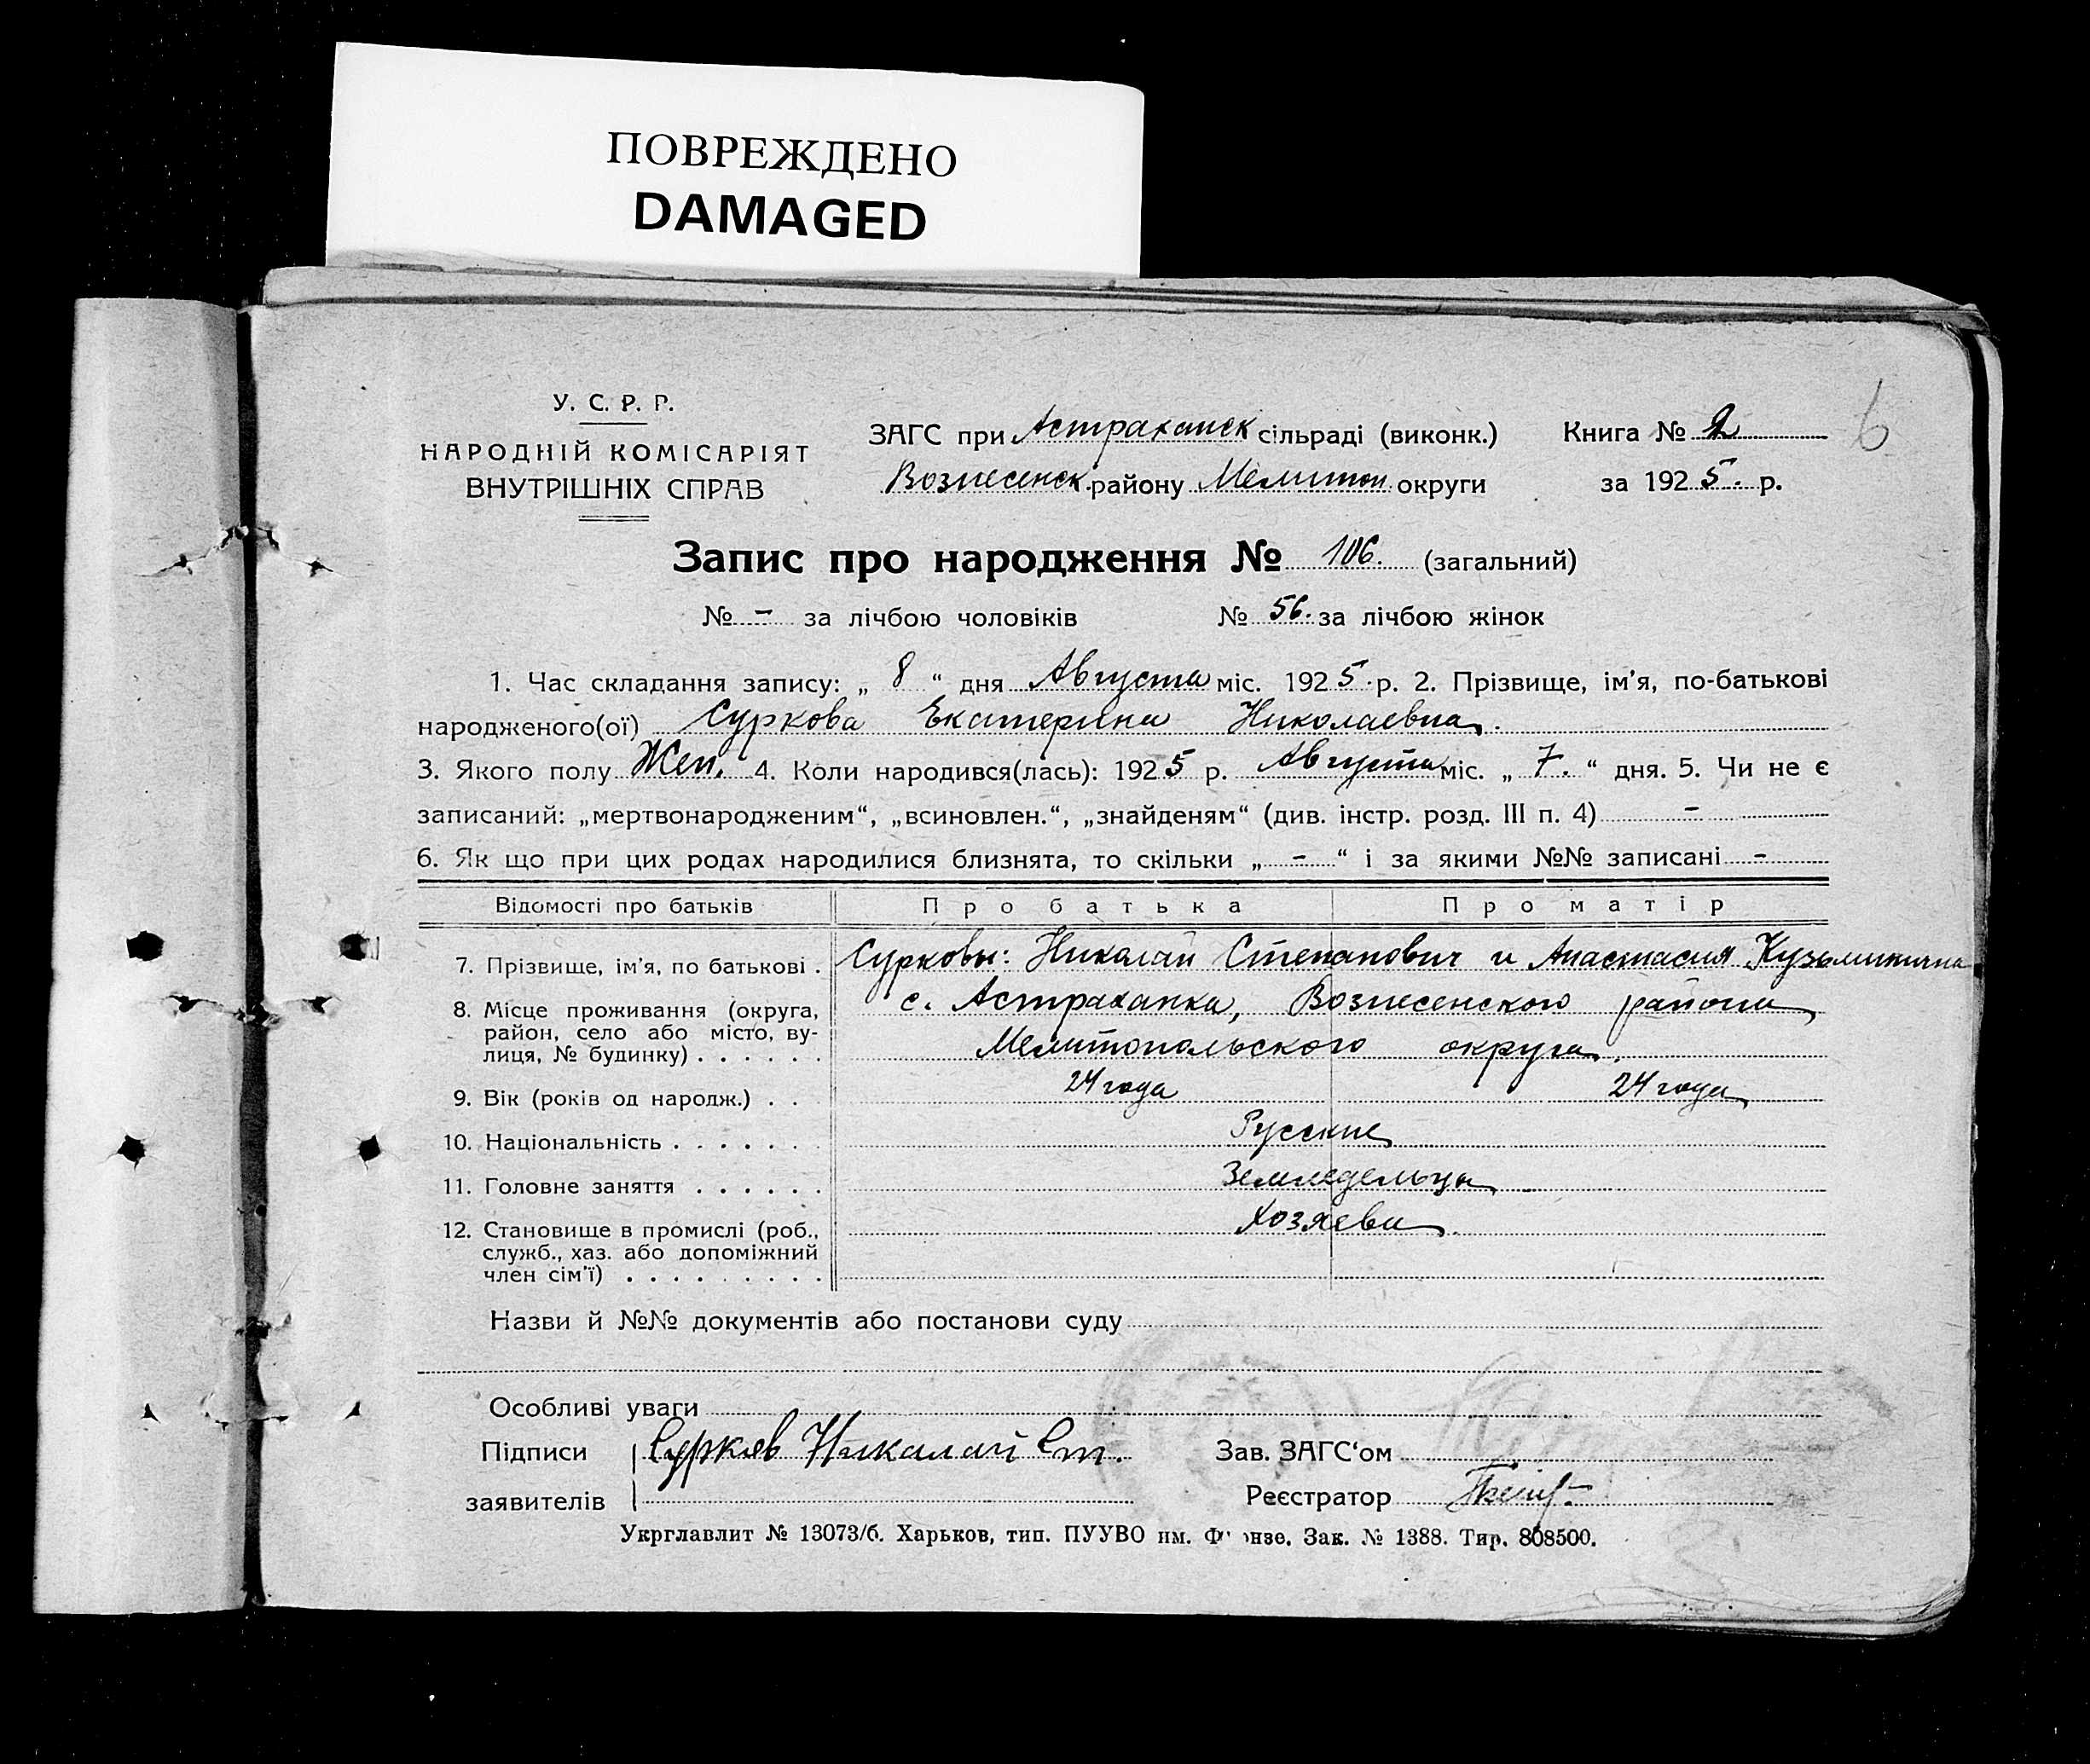 ПОВРЕЖДЕНО
DAMAGED
6
У. С. Р. Р.
НАРОДНІЙ КОМІСАРІЯТ
ВНУТРІШНІХ СПРАВ
ЗАГС при Астраханск сільраді (виконк.)
Вознесенск. району Мелитоп. округи
Книга № 2
за 1925. р.
Запис про народження № 106. (загальний)
№ - за лічбою чоловіків № 56. за лічбою жінок
1. Час складання запису: „ 8 “ дня Августа міс. 1925. р. 2. Прізвище, ім'я, по-батькові
народженого(ої) Суркова Екатерина Николаевна.
3. Якого полу Жен. 4. Коли народився(лась): 1925 р. Августа міс. „ 7. “ дня. 5. Чи не є
записаний: „мертвонародженим“, „всиновлен.“, „знайденям“ (див. інстр. розд. III п. 4) -
6. Як що при цих родах народилися близнята, то скільки „ - “ і за якими №№ записані -
Відомості про батьків Про батька Про матір
7. Прізвище, ім'я, по батькові . Сурковы: Николай Степанович и Анастасия Кузьминична
8. Місце проживання (округа, с. Астраханка, Вознесенского района
район, село або місто, ву-
лиця, № будинку) . . . . . . Мелитопольского округа.
9. Вік (років од народж.) . . 24 года 24 года
10. Національність . . . . . . Русские
11. Головне заняття . . . . . . Земледельцы
12. Становище в промислі (роб., Хозяева.
служб., хаз. або допоміжний
член сім'ї) . . . . . . . . .
Назви й №№ документів або постанови суду
Особливі уваги
Підписи Сурков Николай Ст.
заявителів
Зав. ЗАГС'ом
Реєстратор
Укрглавлит № 13073/б. Харьков, тип. ПУУВО им. Фрунзе. Зак. № 1388. Тир. 808500.